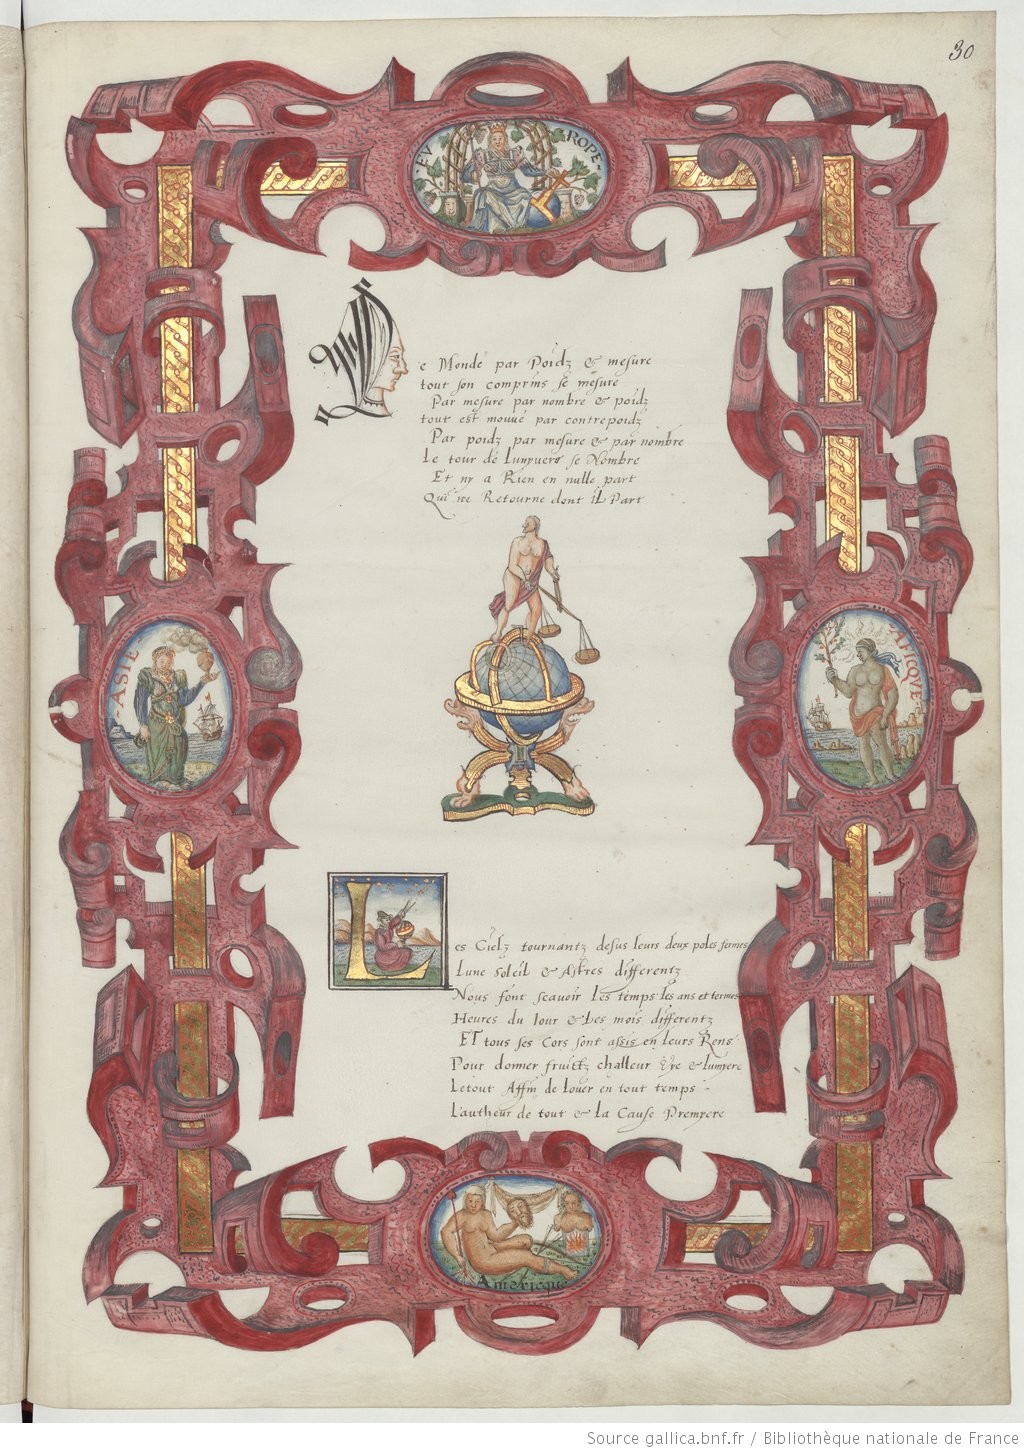 30
EVROPE
Le Monde par Poidz & mesure
tout son comprins se mesure
Par mesure par nombre & poidz
tout est mouué par contrepoidz
Par poidz par mesure & par nombre
Le tour de Lunyuers se Nombre
Et ny a Rien en nulle part
Qui ne Retourne dont il Part
ASIE
AFICQVE
Les Cielz tournantz desus leurs deux poles fermes
Lune soleil & Astres differentz
Nous font scauoir Les temps les ans et termes
Heures du Iour & Les mois differentz
ET tous ses Cors sont assis en leurs Rens
Pour donner fruittz challeur & lumiere
Letout Affin de Louer en tout temps
L'autheur de tout & la Cause Premyere
Americque
Source gallica.bnf.fr / Bibliothèque nationale de France